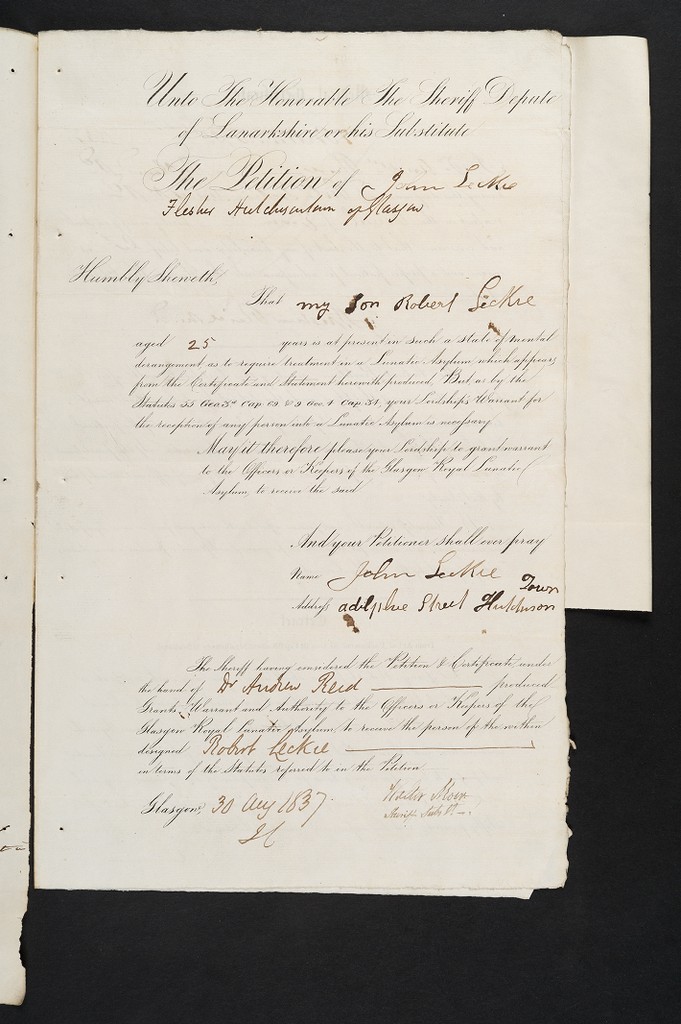 Unto The Honorable The Sheriff Depute
of Lanarkshire or his Substitute
The Petition of John Leckie
Flesher Hutchesontown of Glasgow
Humbly Sheweth,
That my son Robert Leckie
aged 25 years is at present in such a state of mental
derangement, as to require treatment in a Lunatic Asylum which appears
from the Certificate and Statement herewith produced, But as by the
Statutes 55 Geo 3d Cap 69 & 9 Geo 4 Cap 34, your Lordship's Warrant for
the reception of any person into a Lunatic Asylum is necessary
May it therefore please your Lordship to grant warrant
to the Officers or Keepers of the Glasgow Royal Lunatic
Asylum, to receive the said
And your Petitioner shall ever pray
Name John Leckie
Address adelphie Street Hutchinson Town
The Sheriff having considered the Petition & Certificate under
the hand of Dr Andrew Reid produced
Grants Warrant and Authority to the Officers or Keepers of the
Glasgow Royal Lunatic Asylum, to receive the person of the within
designed Robert Leckie
in terms of the Statutes referred to in the Petition
Glasgow, 30 Aug 1837